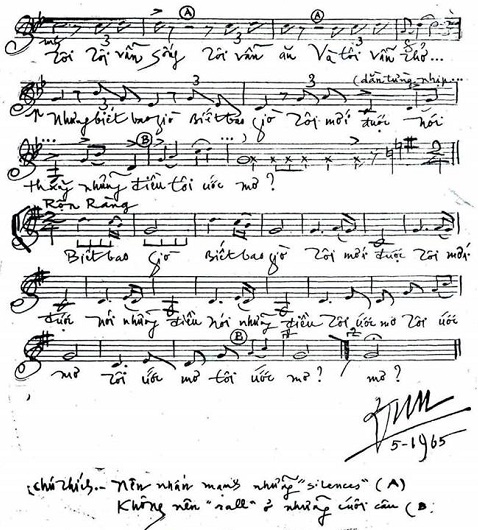 A A
Tôi Tôi vẫn sống Tôi vẫn ăn Và tôi vẫn thở...
3 3 3
(dần từng nhịp...
3 3
Nhưng biết bao giờ Biết bao giờ Tôi mới được nói
B
thẳng những điều tôi ước mơ?
Rộn Ràng
Biết bao giờ Biết bao giờ Tôi mới được Tôi mới
được nói những điều nói những điều Tôi ước mơ Tôi ước
B
mơ Tôi ước mơ tôi ước mơ? mơ?
5-1965
Chú thích.- Nên nhấn mạnh những "silences" (A)
Không nên "rall" ở những cuối câu (B.